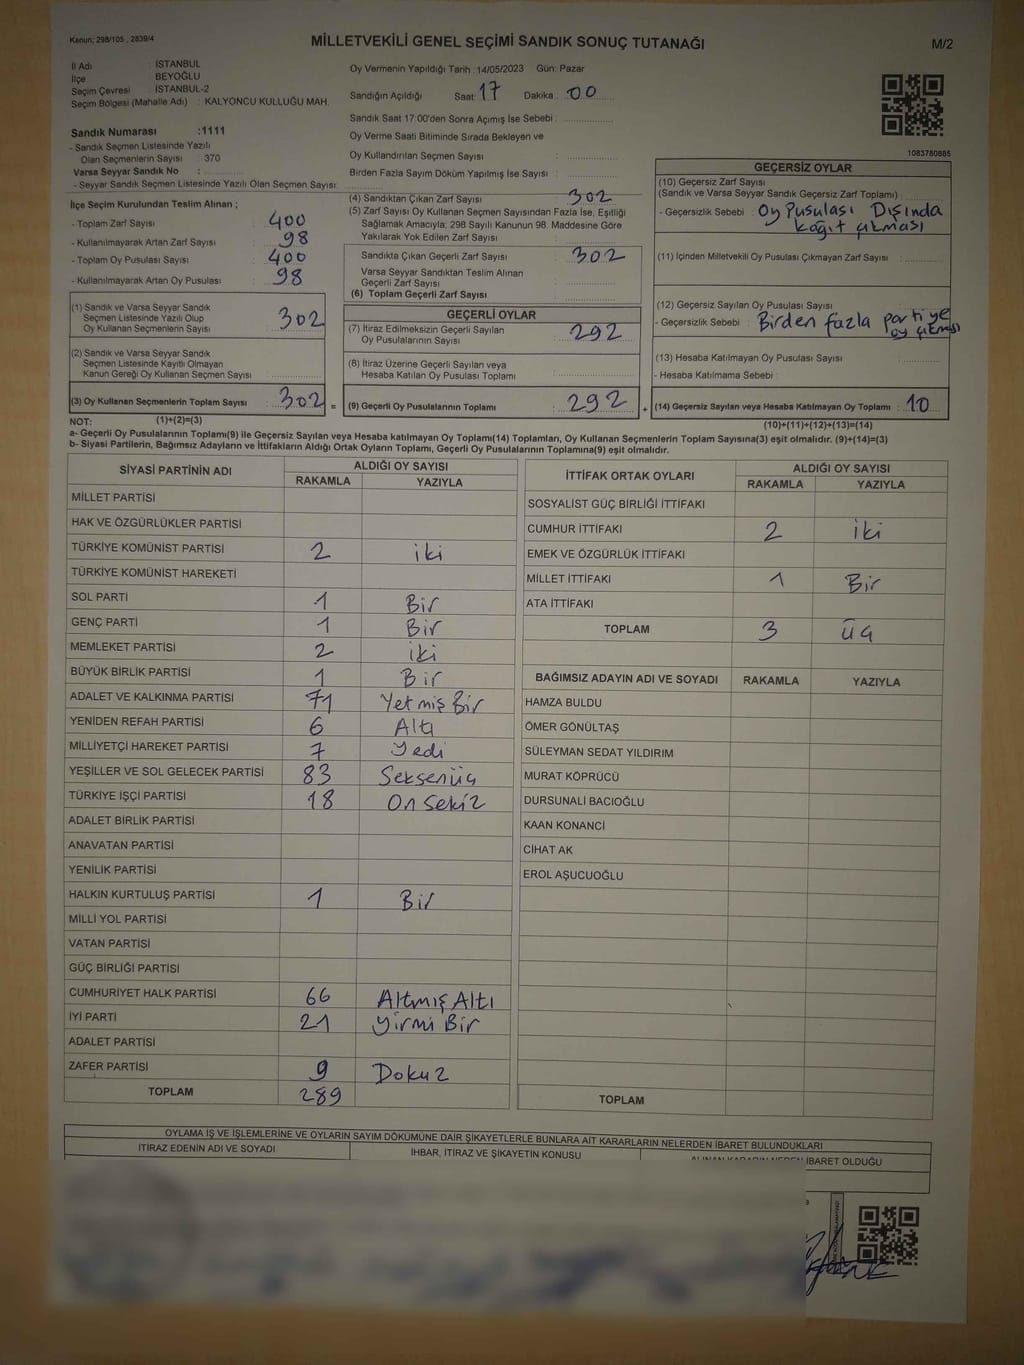 Kanun: 298/105 , 2839/4
MİLLETVEKİLİ GENEL SEÇİMİ SANDIK SONUÇ TUTANAĞI
M/2
İl Adı : İSTANBUL
İlçe : BEYOĞLU
Seçim Çevresi : İSTANBUL-2
Seçim Bölgesi (Mahalle Adı) : KALYONCU KULLUĞU MAH.
Oy Vermenin Yapıldığı Tarih : 14/05/2023 Gün: Pazar
Sandığın Açıldığı Saat: 17 Dakika: 00
Sandık Saat 17:00'den Sonra Açımış İse Sebebi :
Oy Verme Saati Bitiminde Sırada Bekleyen ve
Oy Kullandırılan Seçmen Sayısı :
Birden Fazla Sayım Döküm Yapılmış İse Sayısı :
Sandık Numarası :1111
- Sandık Seçmen Listesinde Yazılı
Olan Seçmenlerin Sayısı : 370
Varsa Seyyar Sandık No :
- Seyyar Sandık Seçmen Listesinde Yazılı Olan Seçmen Sayısı:
1083780885
İlçe Seçim Kurulundan Teslim Alınan ;
- Toplam Zarf Sayısı : 400
- Kullanılmayarak Artan Zarf Sayısı : 98
- Toplam Oy Pusulası Sayısı : 400
- Kullanılmayarak Artan Oy Pusulası : 98
(1) Sandık ve Varsa Seyyar Sandık
Seçmen Listesinde Yazılı Olup
Oy Kullanan Seçmenlerin Sayısı : 302
(2) Sandık ve Varsa Seyyar Sandık
Seçmen Listesinde Kayıtlı Olmayan
Kanun Gereği Oy Kullanan Seçmen Sayısı :
(3) Oy Kullanan Seçmenlerin Toplam Sayısı : 302 =
(1)+(2)=(3)
(4) Sandıktan Çıkan Zarf Sayısı : 302
(5) Zarf Sayısı Oy Kullanan Seçmen Sayısından Fazla İse, Eşitliği
Sağlamak Amacıyla; 298 Sayılı Kanunun 98. Maddesine Göre
Yakılarak Yok Edilen Zarf Sayısı :
Sandıkta Çıkan Geçerli Zarf Sayısı : 302
Varsa Seyyar Sandıktan Teslim Alınan
Geçerli Zarf Sayısı :
(6) Toplam Geçerli Zarf Sayısı :
GEÇERLİ OYLAR
(7) İtiraz Edilmeksizin Geçerli Sayılan
Oy Pusulalarının Sayısı : 292
(8) İtiraz Üzerine Geçerli Sayılan veya
Hesaba Katılan Oy Pusulası Toplamı :
(9) Geçerli Oy Pusulalarının Toplamı : 292 +
GEÇERSİZ OYLAR
(10) Geçersiz Zarf Sayısı
(Sandık ve Varsa Seyyar Sandık Geçersiz Zarf Toplamı) :
- Geçersizlik Sebebi : Oy Pusulası Dışında
kağıt çıkması
(11) İçinden Milletvekili Oy Pusulası Çıkmayan Zarf Sayısı :
(12) Geçersiz Sayılan Oy Pusulası Sayısı :
- Geçersizlik Sebebi : Birden fazla partiye
oy çıkması
(13) Hesaba Katılmayan Oy Pusulası Sayısı :
- Hesaba Katılmama Sebebi :
(14) Geçersiz Sayılan veya Hesaba Katılmayan Oy Toplamı : 10
(10)+(11)+(12)+(13)=(14)
NOT:
a- Geçerli Oy Pusulalarının Toplamı(9) ile Geçersiz Sayılan veya Hesaba katılmayan Oy Toplamı(14) Toplamları, Oy Kullanan Seçmenlerin Toplam Sayısına(3) eşit olmalıdır. (9)+(14)=(3)
b- Siyasi Partilerin, Bağımsız Adayların ve İttifakların Aldığı Ortak Oyların Toplamı, Geçerli Oy Pusulalarının Toplamına(9) eşit olmalıdır.
SİYASİ PARTİNİN ADI ALDIĞI OY SAYISI
RAKAMLA YAZIYLA
MİLLET PARTİSİ
HAK VE ÖZGÜRLÜKLER PARTİSİ
TÜRKİYE KOMÜNİST PARTİSİ 2 iki
TÜRKİYE KOMÜNİST HAREKETİ
SOL PARTİ 1 Bir
GENÇ PARTİ 1 Bir
MEMLEKET PARTİSİ 2 iki
BÜYÜK BİRLİK PARTİSİ 1 Bir
ADALET VE KALKINMA PARTİSİ 71 Yetmiş Bir
YENİDEN REFAH PARTİSİ 6 Altı
MİLLİYETÇİ HAREKET PARTİSİ 7 Yedi
YEŞİLLER VE SOL GELECEK PARTİSİ 83 Seksenüç
TÜRKİYE İŞÇİ PARTİSİ 18 On Sekiz
ADALET BİRLİK PARTİSİ
ANAVATAN PARTİSİ
YENİLİK PARTİSİ
HALKIN KURTULUŞ PARTİSİ 1 Bir
MİLLİ YOL PARTİSİ
VATAN PARTİSİ
GÜÇ BİRLİĞİ PARTİSİ
CUMHURİYET HALK PARTİSİ 66 Altmış Altı
İYİ PARTİ 21 Yirmi Bir
ADALET PARTİSİ
ZAFER PARTİSİ 9 Dokuz
TOPLAM 289
İTTİFAK ORTAK OYLARI ALDIĞI OY SAYISI
RAKAMLA YAZIYLA
SOSYALİST GÜÇ BİRLİĞİ İTTİFAKI
CUMHUR İTTİFAKI 2 iki
EMEK VE ÖZGÜRLÜK İTTİFAKI
MİLLET İTTİFAKI 1 Bir
ATA İTTİFAKI
TOPLAM 3 üç
BAĞIMSIZ ADAYIN ADI VE SOYADI RAKAMLA YAZIYLA
HAMZA BULDU
ÖMER GÖNÜLTAŞ
SÜLEYMAN SEDAT YILDIRIM
MURAT KÖPRÜCÜ
DURSUNALİ BACIOĞLU
KAAN KONANCİ
CİHAT AK
EROL AŞUCUOĞLU
TOPLAM
OYLAMA İŞ VE İŞLEMLERİNE VE OYLARIN SAYIM DÖKÜMÜNE DAİR ŞİKAYETLERLE BUNLARA AİT KARARLARIN NELERDEN İBARET BULUNDUKLARI
İTİRAZ EDENİN ADI VE SOYADI İHBAR, İTİRAZ VE ŞİKAYETİN KONUSU ALINAN KARARIN NEDEN İBARET OLDUĞU